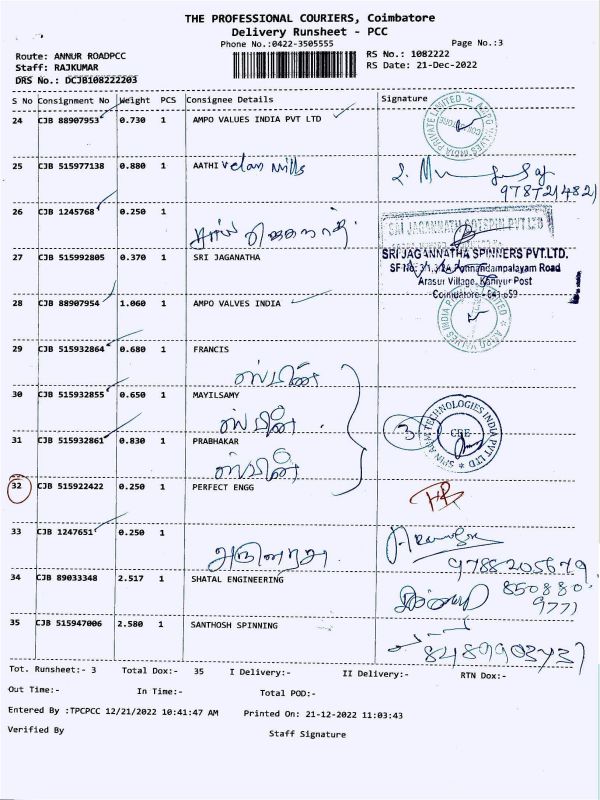 THE PROFESSIONAL COURIERS, Coimbatore
Delivery Runsheet - PCC
Phone No.:0422-3505555
Page No.:3
Route: ANNUR ROADPCC
RS No.: 1082222
Staff: RAJKUMAR
RS Date: 21-Dec-2022
DRS No.: DCJB108222203
S No Consignment No Weight PCS Consignee Details Signature
24 CJB 88907953 0.730 1 AMPO VALUES INDIA PVT LTD
25 CJB 515977138 0.880 1 AATHI Velan Mills
26 CJB 1245768 0.250 1
SRI JAGANNATH COTSPIN PVT.LTD
27 CJB 515992805 0.370 1 SRI JAGANATHA
SRI JAGANNATHA SPINNERS PVT.LTD.
SF No: 3/1,3/2A Ponnandampalayam Road
Arasur Village, Kaniyur Post
Coimbatore - 641 659
28 CJB 88907954 1.060 1 AMPO VALVES INDIA
29 CJB 515932864 0.680 1 FRANCIS
30 CJB 515932855 0.650 1 MAYILSAMY
3
31 CJB 515932861 0.830 1 PRABHAKAR
32 CJB 515922422 0.250 1 PERFECT ENGG
33 CJB 1247651 0.250 1
9788205679
34 CJB 89033348 2.517 1 SHATAL ENGINEERING
850880
9771
35 CJB 515947006 2.580 1 SANTHOSH SPINNING
Tot. Runsheet:- 3 Total Dox:- 35 I Delivery:- II Delivery:- RTN Dox:-
Out Time:- In Time:- Total POD:-
Entered By :TPCPCC 12/21/2022 10:41:47 AM Printed On: 21-12-2022 11:03:43
Verified By Staff Signature